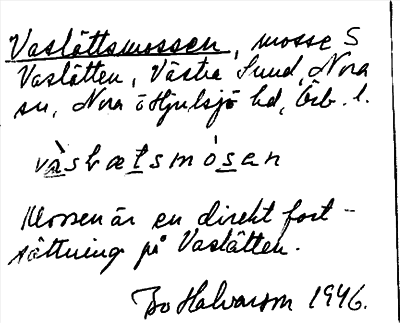 Vaslättsmossen, mosse S
Vaslätten, Västra Sund, Nora
sn, Nora o Hjulsjö hd, Örb. l.
vàslætsmósen
Mossen är en direkt fort-
sättning på Vaslätten.
Bo Halvarson 1946.